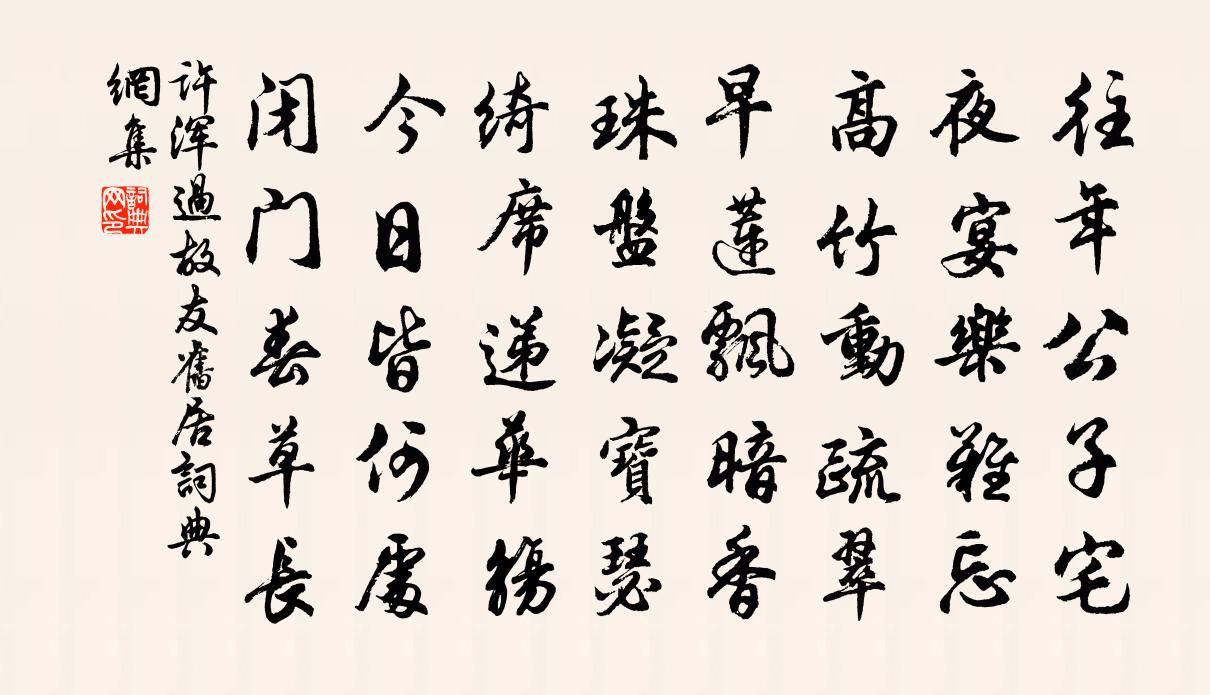 往年公子宅
夜宴樂難忘
高竹動疏翠
早蓮飄暗香
珠盤凝寶瑟
綺席递華觴
今日皆何處
闭门春草長
許渾過故友舊居詞典
網集
詞典
网印